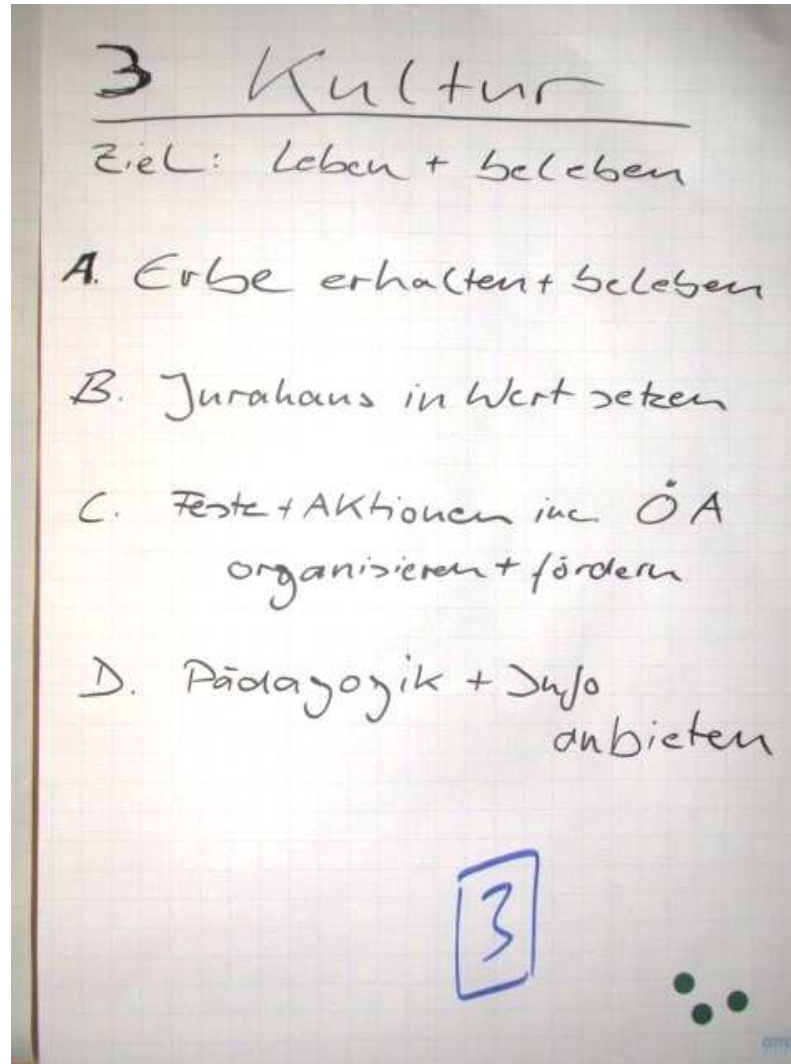 3 Kultur
Ziel: Leben + beleben
A. Erbe erhalten + beleben
B. Jurahaus in Wert setzen
C. Feste + Aktionen inc. ÖA
organisieren + fördern
D. Pädagogik + Info
anbieten
3